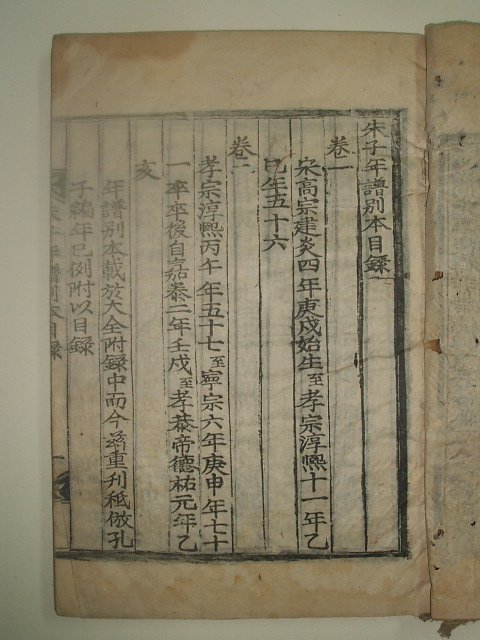 朱子年譜別本目錄
卷一
宋高宗建炎四年庚戌始生至孝宗淳熙十一年乙
巳年五十六
卷二
孝宗淳熙丙午年五十七至寧宗六年庚申年七十
一卒卒後自嘉泰二年壬戌至孝恭帝德祐元年乙
亥
年譜別本載於大全附錄中而今玆重刊秪倣孔
子編年已例附以目錄
年譜別本目錄